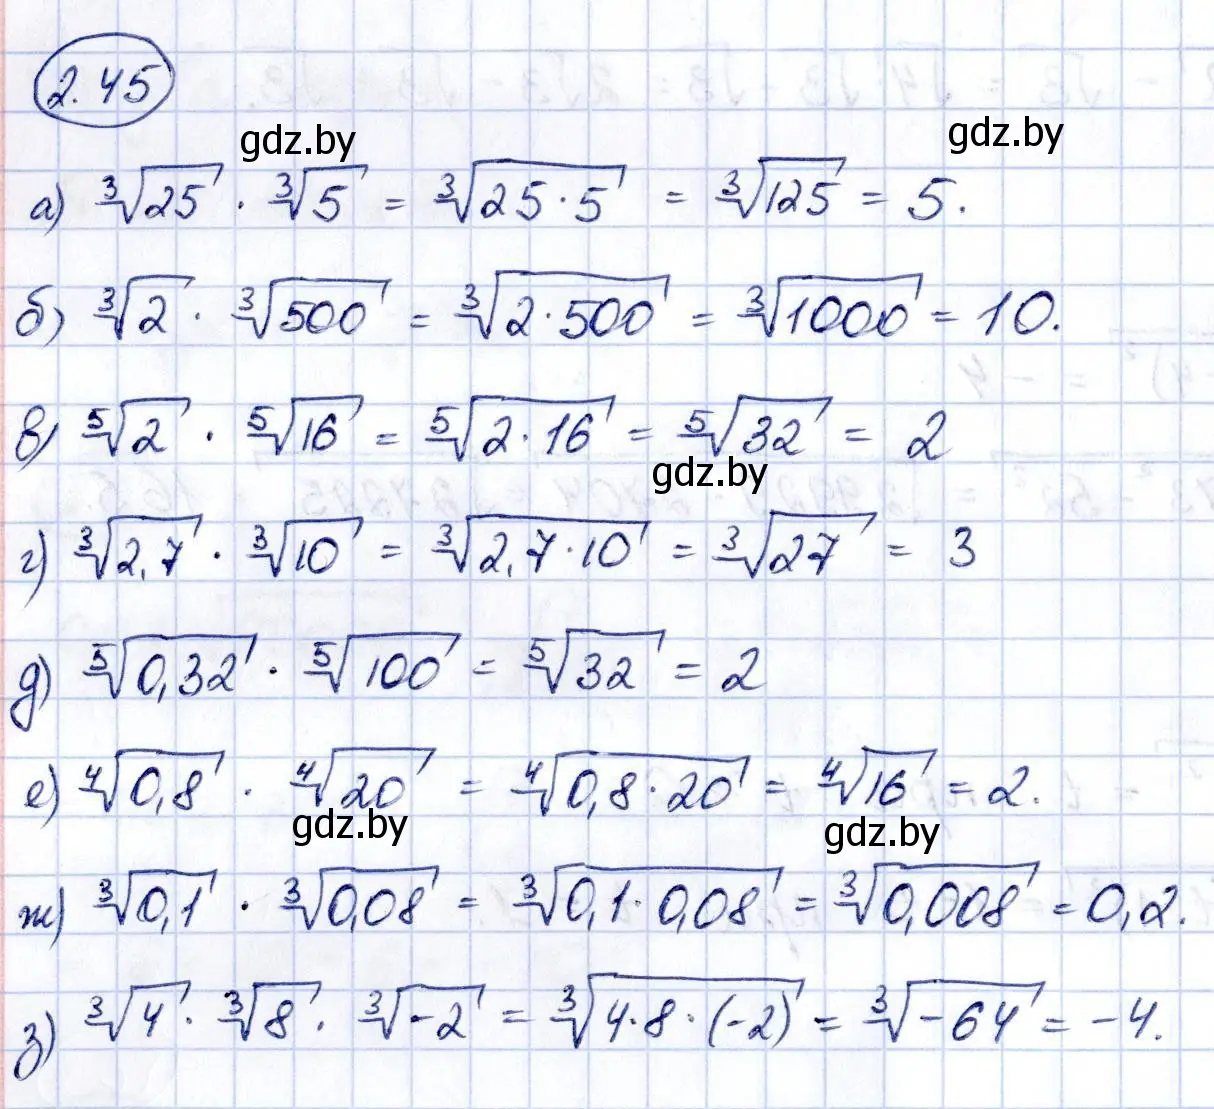 2.45
gdz.by gdz.by
а) ∛25 · ∛5 = ∛(25 · 5) = ∛125 = 5.
б) ∛2 · ∛500 = ∛(2 · 500) = ∛1000 = 10.
в) ⁵√2 · ⁵√16 = ⁵√(2 · 16) = ⁵√32 = 2
gdz.by
г) ∛2,7 · ∛10 = ∛(2,7 · 10) = ∛27 = 3
д) ⁵√0,32 · ⁵√100 = ⁵√32 = 2
е) ∜0,8 · ∜20 = ∜(0,8 · 20) = ∜16 = 2.
gdz.by gdz.by
ж) ∛0,1 · ∛0,08 = ∛(0,1 · 0,08) = ∛0,008 = 0,2.
з) ∛4 · ∛8 · ∛-2 = ∛(4 · 8 · (-2)) = ∛-64 = -4.